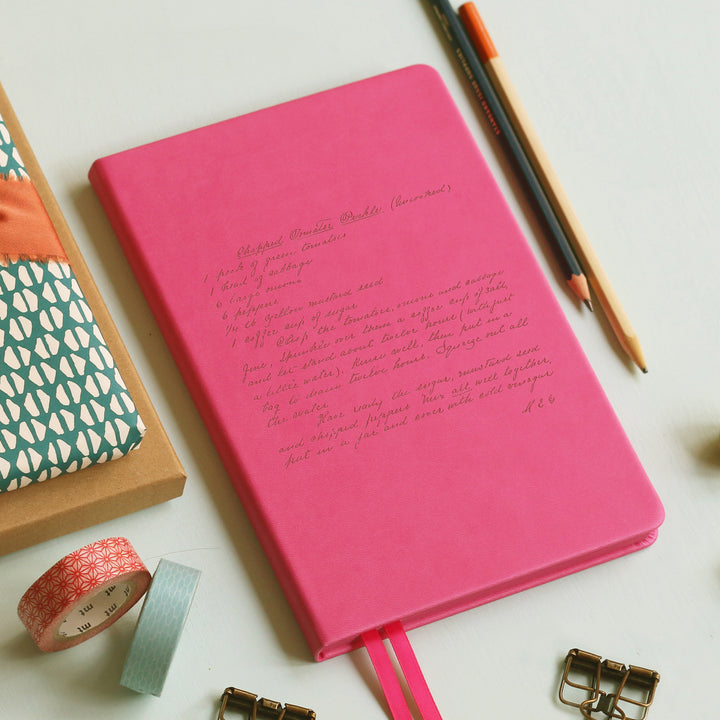 Chopped Tomato Pickle. (Uncooked)
1 peck of green tomatoes
1 head of cabbage
6 large onions
6 peppers
1/4 lb yellow mustard seed
1 coffee cup of sugar
Chop the tomatoes, onions and cabbage
fine, sprinkle over them a coffee cup of salt,
and let stand about twelve hours (with just
a little water). Rinse well, then put in a
bag to drain twelve hours. Squeeze out all
the water.
Have ready the sugar, mustard seed
and chopped peppers. Mix all well together,
put in a jar and cover with cold vinegar
mt
mt